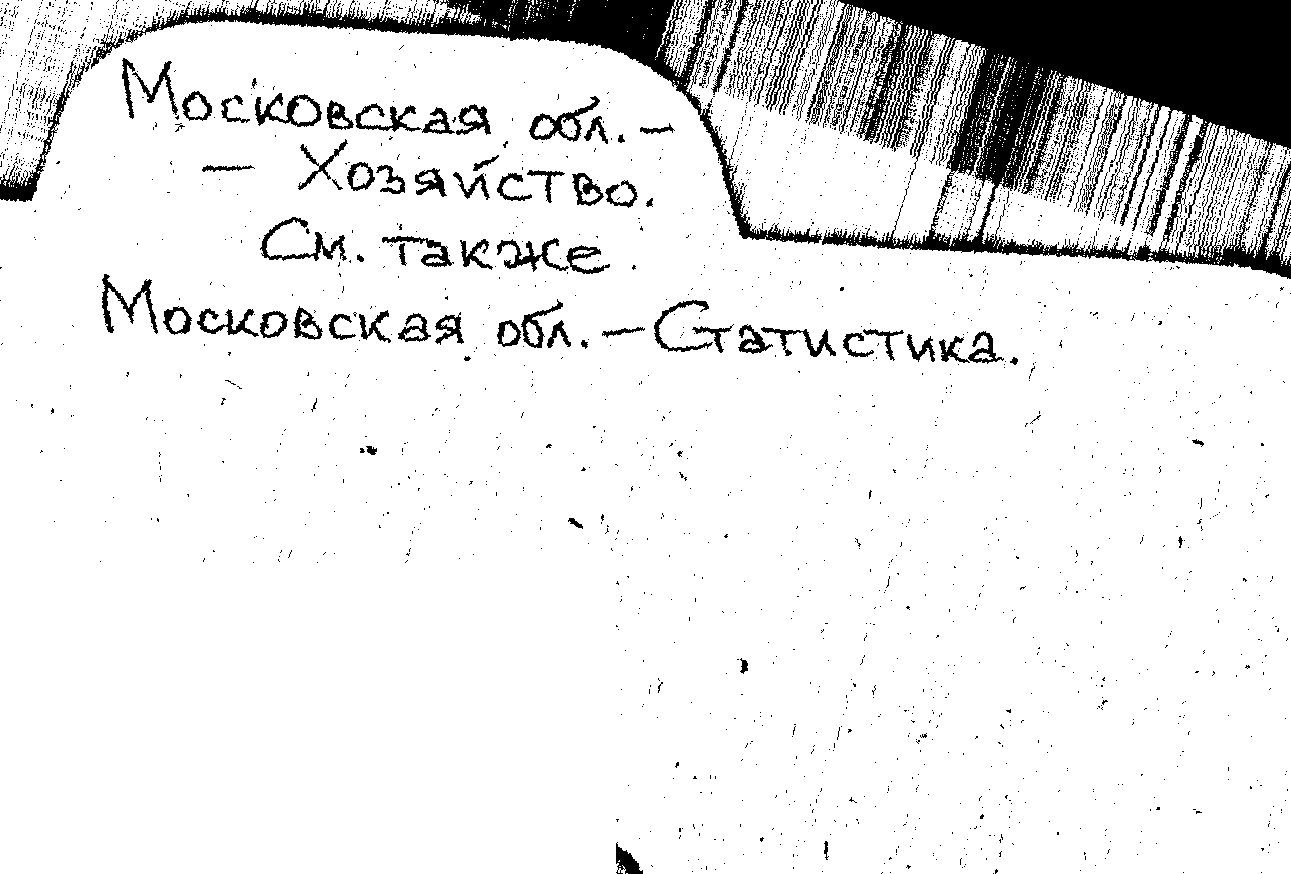 Московская обл. –
– Хозяйство.
См. также
Московская обл. – Статистика.